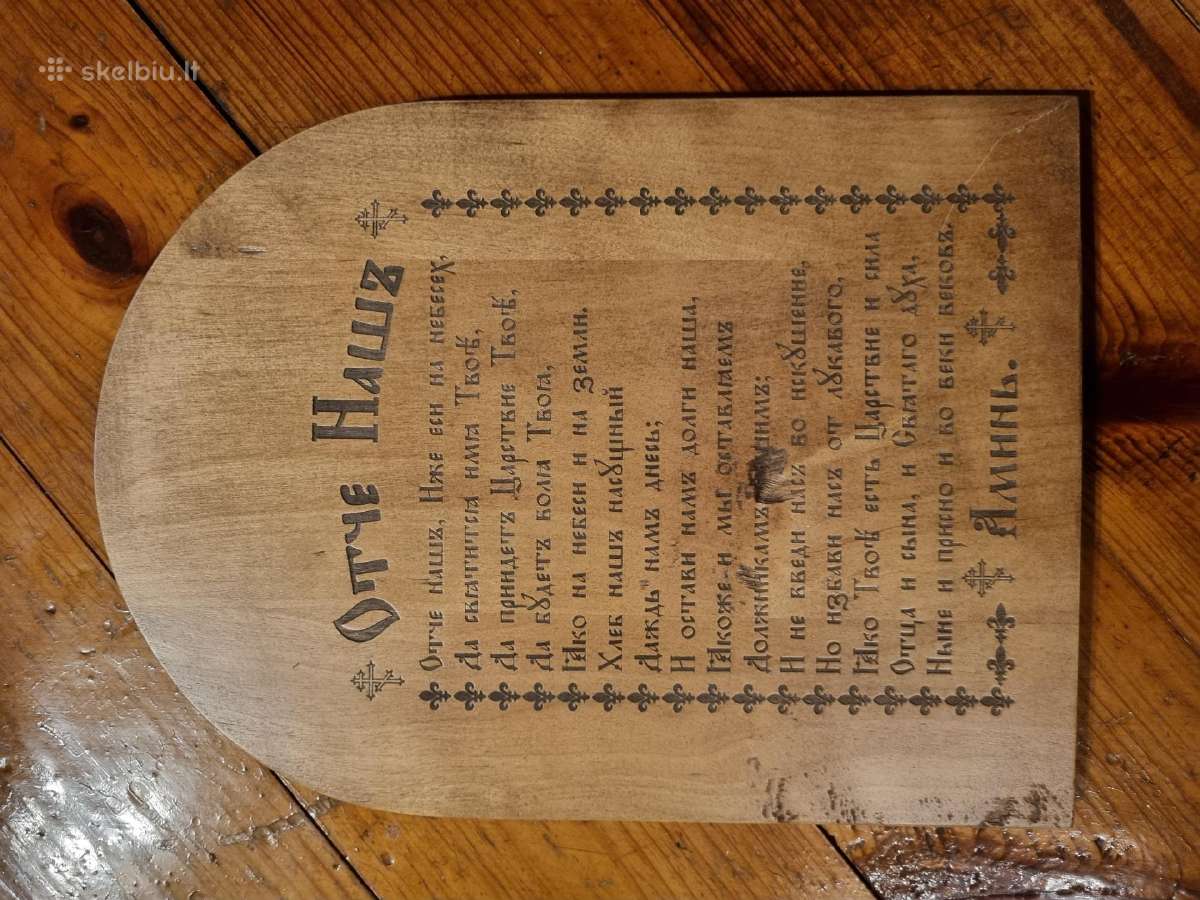 skelbiu.lt
Отче Нашъ
Отче нашъ, Иже еси на небесех,
Да свѧтитсѧ имѧ Твоѣ,
Да приидетъ Царствие Твоѣ,
Да бꙋдетъ волѧ Твоꙗ,
Ꙗко на небеси и на земли.
Хлеб нашъ насꙋщный
Даждь" намъ днесь;
И остави намъ долги наша,
Ꙗкоже и мы оставлѧемъ
Должникамъ
И не введи насъ во искꙋшение,
Но избави насъ от лꙋкавого,
Ꙗко Твоѣ есть Царствие и сила
Отца и сына, и Свѧтаго дꙋха,
Ныне и присно и во веки вековъ.
Аминь.